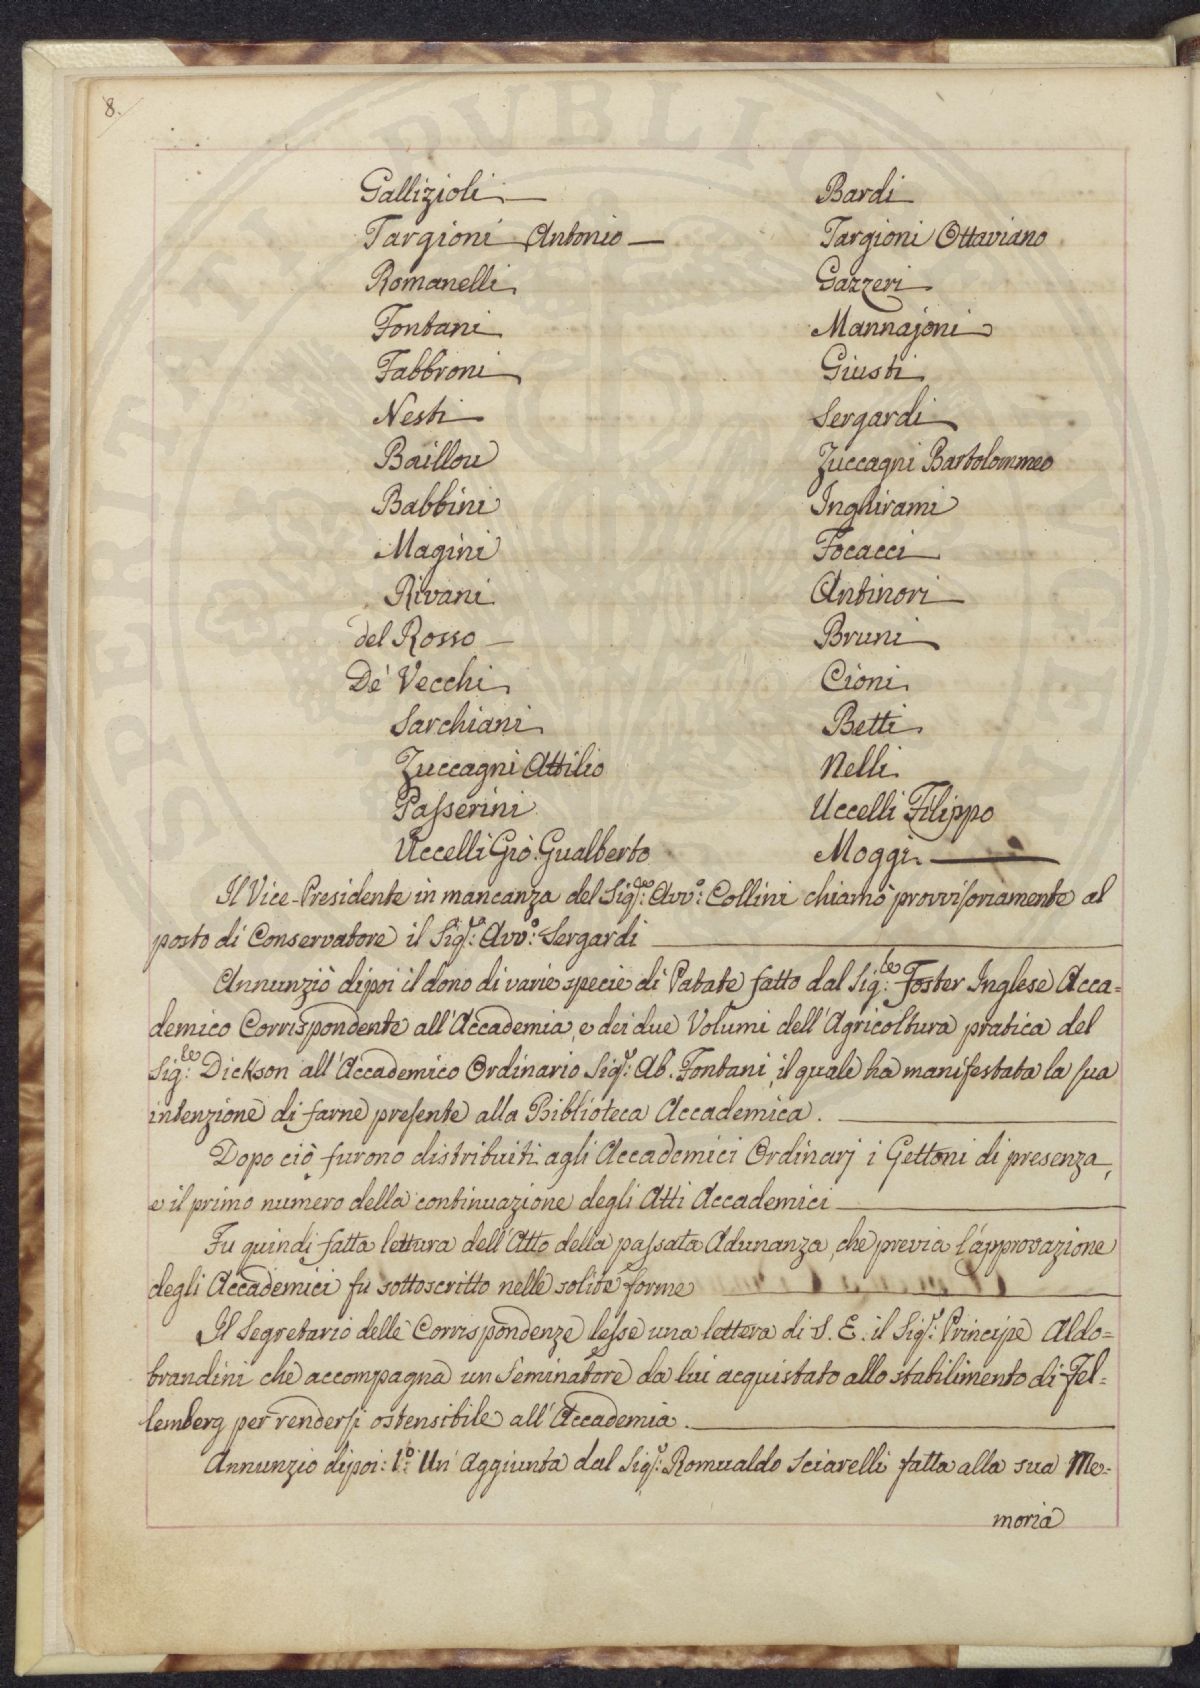 8.
Gallizioli
Targioni Antonio
Romanelli
Fontani
Fabbroni
Nesti
Baillou
Babbini
Magini
Rivani
del Rosso
De' Vecchi
Sarchiani
Zuccagni Attilio
Passerini
Uccelli Gio: Gualberto
Bardi
Targioni Ottaviano
Gazzeri
Mannajoni
Giusti
Sergardi
Zuccagni Bartolommeo
Inghirami
Focacci
Antinori
Bruni
Cioni
Betti
Nelli
Uccelli Filippo
Moggi
Il Vice-Presidente in mancanza del Sig:re Avv:o Collini chiamò provvisoriamente al
posto di Conservatore il Sig:r Avv:o Sergardi
Annunziò dipoi il dono di varie specie di Patate fatto dal Sig:re Foster Inglese Acca=
demico Corrispondente all'Accademia, e dei due Volumi dell'Agricoltura pratica del
Sig:re Dickson all'Accademico Ordinario Sig:r Ab. Fontani, il quale ha manifestata la sua
intenzione di farne presente alla Biblioteca Accademica.
Dopo ciò furono distribuiti agli Accademici Ordinarj i Gettoni di presenza,
e il primo numero della continuazione degli Atti Accademici
Fu quindi fatta lettura dell'Atto della passata Adunanza, che previa l'approvazione
degli Accademici fu sottoscritto nelle solite forme
Il Segretario delle Corrispondenze lesse una lettera di S. E. il Sig:r Principe Aldo=
brandini che accompagna un Seminatore da lui acquistato allo stabilimento di Fel=
lemberg per rendersi ostensibile all'Accademia.
Annunzio dipoi: 1:o Un' Aggiunta dal Sig:r Romualdo Sciarelli fatta alla sua Me=
moria